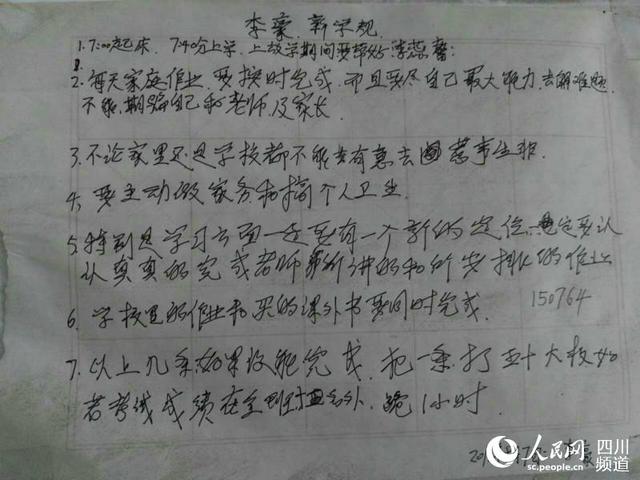 李豪 新家规
1. 7:00起床. 7:40分上学. 上放学期间要带好李蕊馨:
2. 每天家庭作业, 要按时完成. 而且要尽自己最大能力, 去解难题
不能, 期骗自己和老师, 及家长.
3. 不论家里还是学校都不能去有意去惹事生非.
4. 要主动做家务和搞个人卫生.
5. 特别是学习方面一定要有一个新的定位. 一定要认
认真真的完成老师所讲的和所安排的作业
6. 学校里的作业和买的课外书要同时完成.
150764
7. 以上几条如果没能完成. 把一条打五十大板如
若考试成绩在全班 名外. 跪1小时.
人民网 四川
sc.people.com.cn 频道